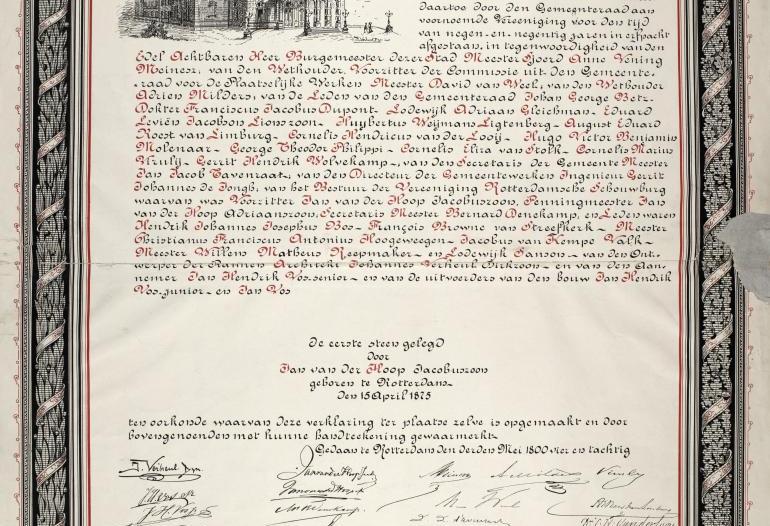 daartoe door den Gemeenteraad aan
voornoemde Vereeniging voor den tijd
van negen-en-negentig jaren in erfpacht
afgestaan, in tegenwoordigheid van den
Edel Achtbaren Heer Burgemeester dezer Stad Meester Sjoerd Anne Vening
Meinesz, van den Wethouder, Voorzitter der Commissie uit den Gemeente-
raad voor de Plaatselijke Werken Meester David van Weel, van den Wethouder
Adrien Milders, van de Leden van den Gemeenteraad Johan George Betz-
Dokter Franciscus Jacobus Dupont- Lodewijk Adriaan Gleichman- Eduard
Leviën Jacobson Lionszoon- Huybertus Weijmans Ligtenberg- August Eduard
Roest van Limburg- Cornelis Hendricus van der Looij- Hugo Victor Benjamin
Molenaar- George Theodor Philippi- Cornelis Eliza van Stolk- Cornelis Marius
Viruly- Gerrit Hendrik Wolvekamp-, van den Secretaris der Gemeente Meester
Jan Jacob Tavenraat, van den Directeur der Gemeentewerken Ingenieur Gerrit
Johannes de Jongh, van het Bestuur der Vereeniging Rotterdamsche Schouwburg
waarvan was Voorzitter Jan van der Hoop Jacobuszoon, Penningmeester Jan
van der Hoop Adriaanszoon, Secretaris Meester Bernard Denekamp, en Leden waren
Hendrik Johannes Josephus Bos- François Browne van Streefkerk- Meester
Christianus Franciscus Antonius Hoogeweegen- Jacobus van Kempe Valk-
Meester Willem Matheus Reepmaker- en Lodewijk Janson- van den Ont-
werper der Plannen Architekt Johannes Verheul Dirkzoon- en van den Aan-
nemer Jan Hendrik Vos senior- en van de uitvoerders van den bouw Jan Hendrik
Vos junior- en Jan Vos
De eerste steen gelegd
door
Jan van der Hoop Jacobuszoon
geboren te Rotterdam-
den 15 April 1875
ten oorkonde waarvan deze verklaring ter plaatse zelve is opgemaakt en door
bovengenoemden met hunne handteekening gewaarmerkt.
Gedaan te Rotterdam den derden Mei 1800 vier en tachtig
J. Verheul Dzn.